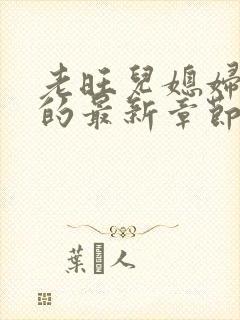 老旺兒媳婦
的最新章節
葉 人